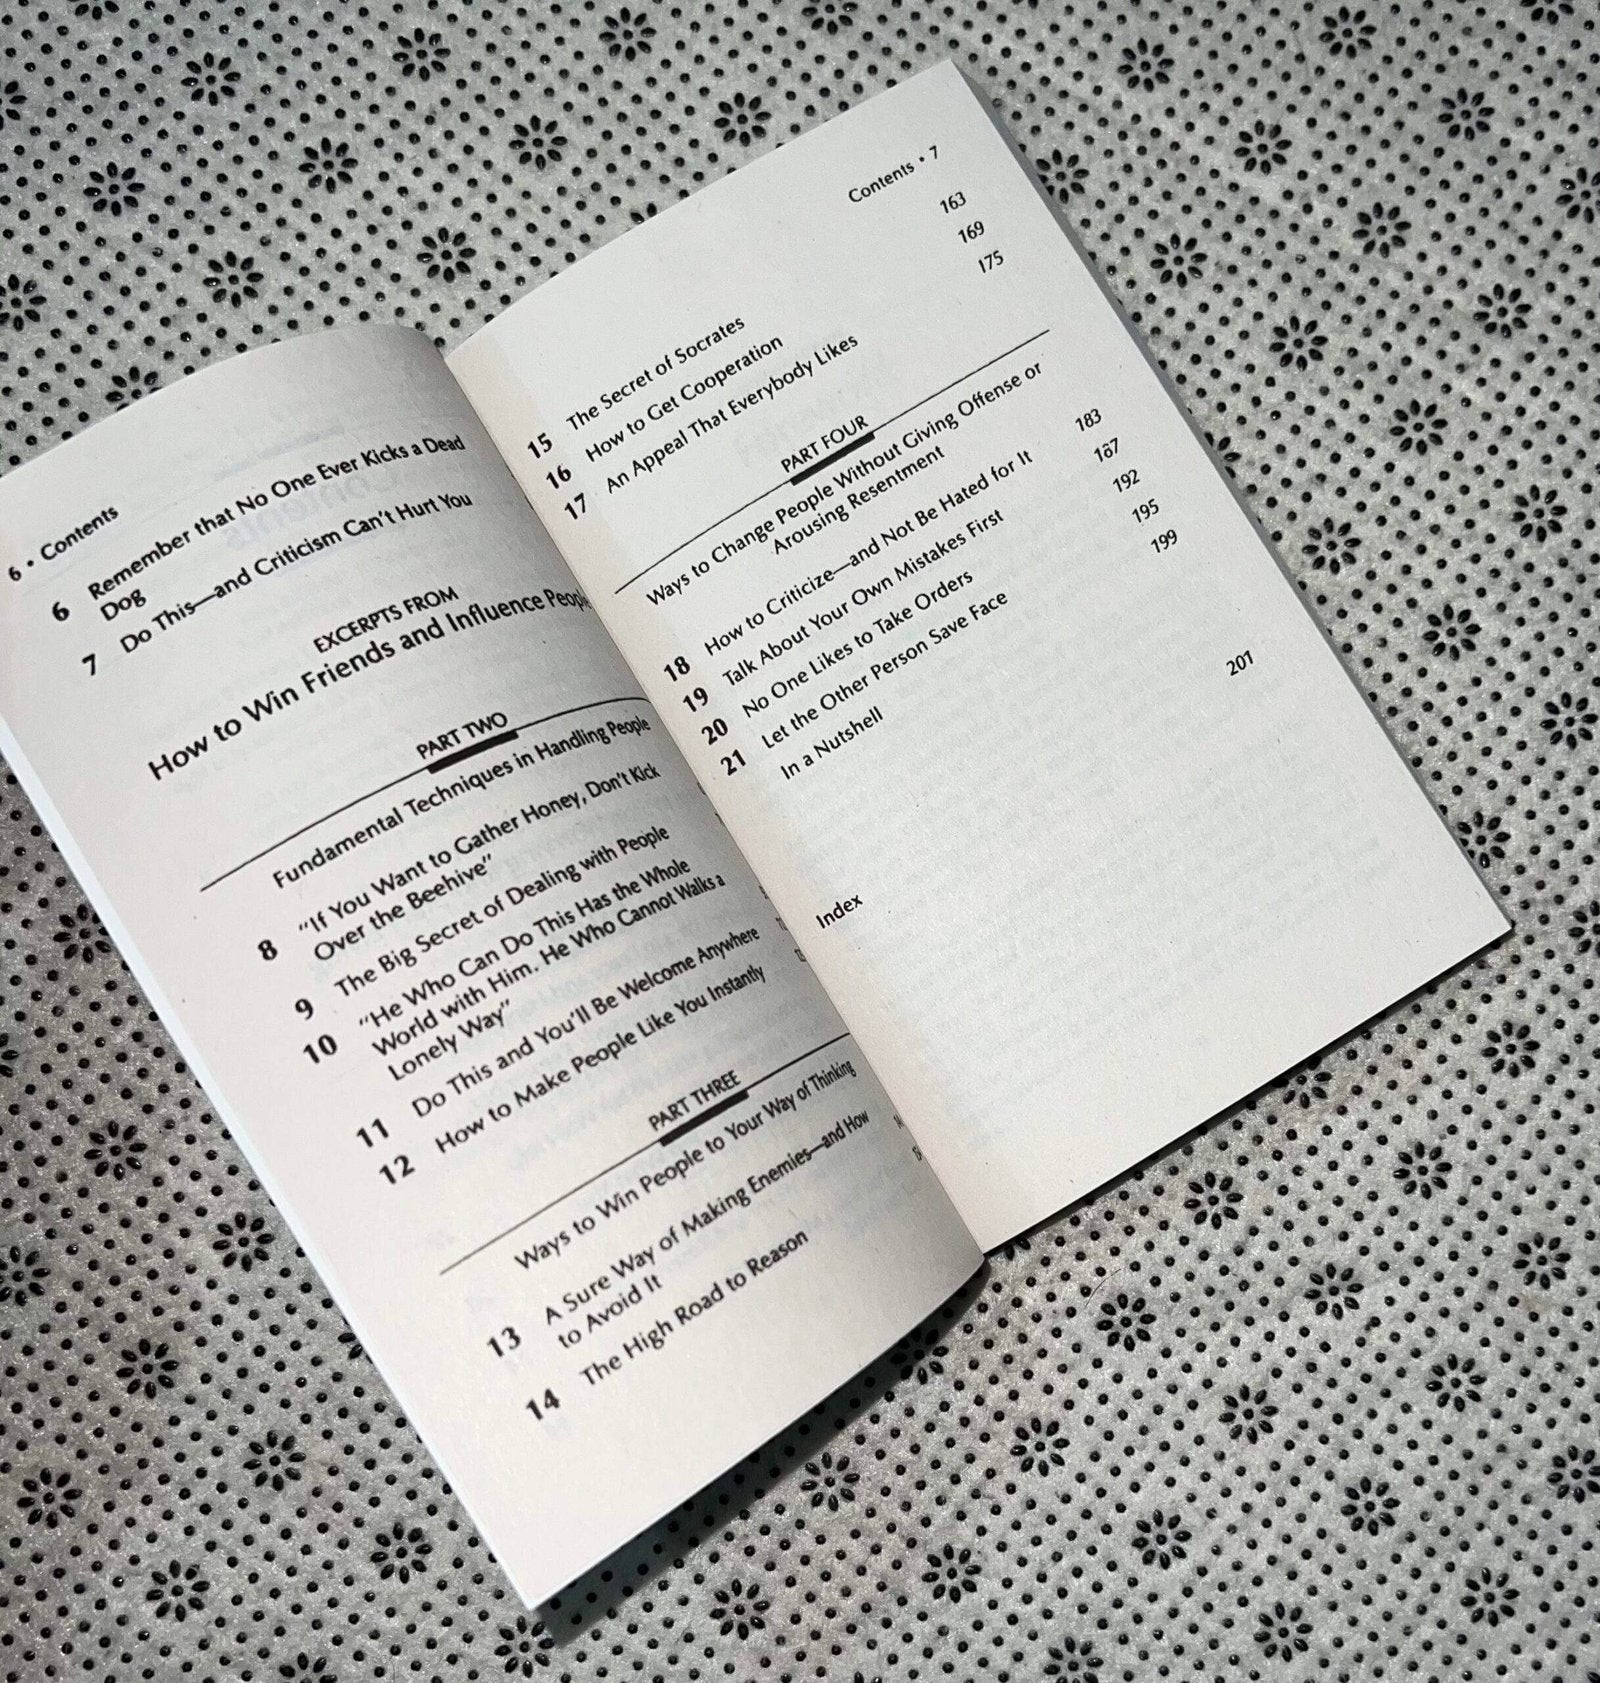 6 • Contents
6 Remember that No One Ever Kicks a Dead
Dog
7 Do This—and Criticism Can't Hurt You
EXCERPTS FROM
How to Win Friends and Influence People
PART TWO
Fundamental Techniques in Handling People
8 "If You Want to Gather Honey, Don't Kick
Over the Beehive"
9 The Big Secret of Dealing with People
10 "He Who Can Do This Has the Whole
World with Him. He Who Cannot Walks a
Lonely Way"
11 Do This and You'll Be Welcome Anywhere
12 How to Make People Like You Instantly
PART THREE
Ways to Win People to Your Way of Thinking
13 A Sure Way of Making Enemies—and How
to Avoid It
14 The High Road to Reason
Contents • 7
15 The Secret of Socrates 163
16 How to Get Cooperation 169
17 An Appeal That Everybody Likes 175
PART FOUR
Ways to Change People Without Giving Offense or
Arousing Resentment
18 How to Criticize—and Not Be Hated for It 183
19 Talk About Your Own Mistakes First 187
20 No One Likes to Take Orders 192
21 Let the Other Person Save Face 195
In a Nutshell 199
Index 201